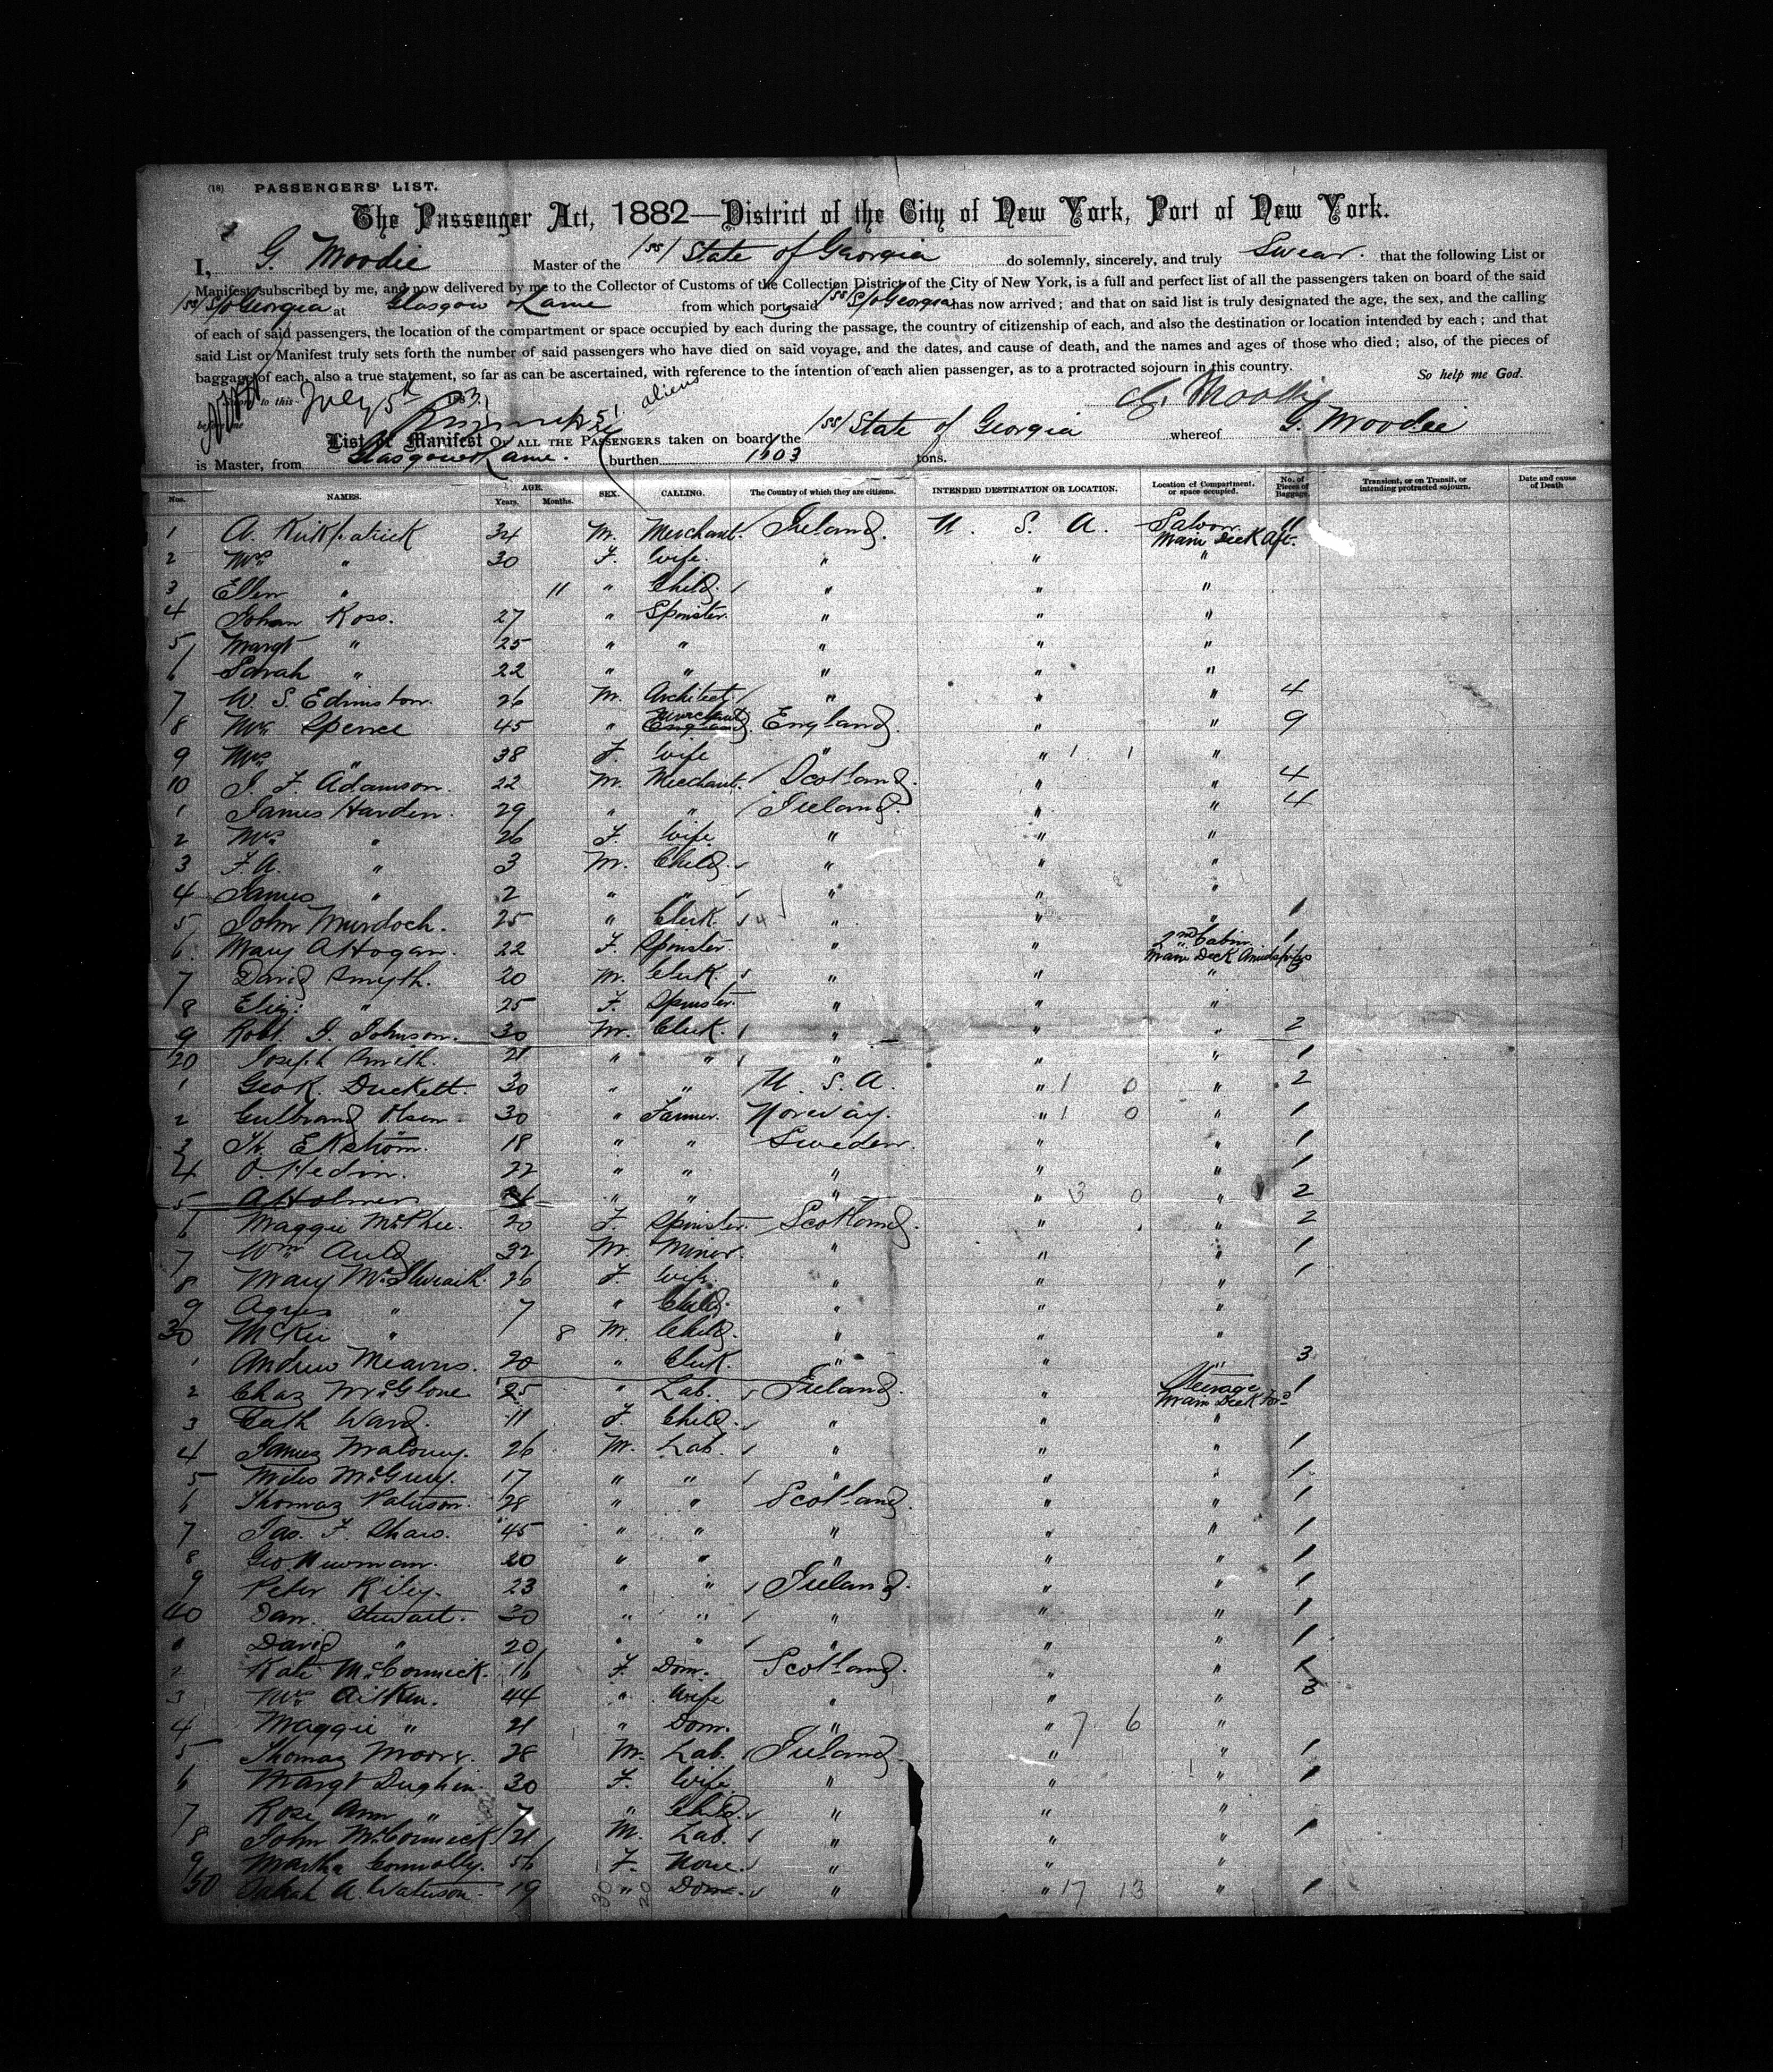 (18) PASSENGERS' LIST.
The Passenger Act, 1882—District of the City of New York, Port of New York.
I, G. Moodie Master of the SS State of Georgia do solemnly, sincerely, and truly Swear. that the following List or
Manifest, subscribed by me, and now delivered by me to the Collector of Customs of the Collection District of the City of New York, is a full and perfect list of all the passengers taken on board of the said
SS S/o Georgia at Glasgow & Larne from which port said SS S/o Georgia has now arrived; and that on said list is truly designated the age, the sex, and the calling
of each of said passengers, the location of the compartment or space occupied by each during the passage, the country of citizenship of each, and also the destination or location intended by each; and that
said List or Manifest truly sets forth the number of said passengers who have died on said voyage, and the dates, and cause of death, and the names and ages of those who died; also, of the pieces of
baggage of each, also a true statement, so far as can be ascertained, with reference to the intention of each alien passenger, as to a protracted sojourn in this country. So help me God.
Sworn to this July 5th 1883 aliens G. Moodie
before me
List or Manifest OF ALL THE PASSENGERS taken on board the SS State of Georgia whereof G. Moodie
is Master, from Glasgow & Larne. burthen 1603 tons.
Nos. NAMES. AGE. Years. Months. SEX. CALLING. The Country of which they are citizens. INTENDED DESTINATION OR LOCATION. Location of Compartment, or space occupied. No. of Pieces of Baggage. Transient, or on Transit, or intending protracted sojourn. Date and cause of Death
1 A. Kirkpatrick 34 M. Merchant. Ireland. U. S. A. Saloon Main Deck Aft.
2 Mrs " 30 F. Wife " " "
3 Ellen " 11 " Child. " " "
4 Johan Ross. 27 " Spinster. " " "
5 Margt " 25 " " " " "
6 Sarah " 22 " " " " "
7 W. S. Edminston. 26 M. Architect. " " " 4
8 Mr. Spence 45 " Merchant England. " " 9
9 Mrs " 38 F. Wife " " 1 1 "
10 J. F. Adamson. 22 M. Merchant. Scotland. " " 4
1 James Harden. 29 " " Ireland. " " 4
2 Mrs " 26 F. Wife " " "
3 F. A. " 3 M. Child. " " "
4 James " 2 " " " " "
5 John Murdoch. 25 " Clerk " " " 1
6 Mary A Hogan. 22 F. Spinster. " " 2nd Cabin Main Deck Amidships 1
7 David Smyth. 20 M. Clerk. " " "
8 Eliz: " 25 F. Spinster. " " "
9 Robt. J. Johnson. 30 M. Clerk. " " " 2
20 Joseph Smith. 21 " " " " " 1
1 Geo R. Duckett. 30 " " U. S. A. " 1 0 " 2
2 Gulbrand Olsen. 30 " Farmer. Norway. " 1 0 " 1
3 Th. Ekström. 18 " " Sweden. " " 1
4 O. Hedin. 22 " " " " " 1
5 A Holmen " " " " 3 0 " 2
6 Maggie McPhee. 20 F. Spinster. Scotland. " " 2
7 Wm Auld 32 M. Miner. " " " 1
8 Mary 26 F. Wife. " " " 1
9 Agnes " 7 " Child. " " "
30 McKie " 8 M. Child. " " "
1 Andrew Mearns. 20 " Clerk. " " " 3
2 Chas McGlone 25 " Lab. Ireland. " Steerage Main Deck Ford 1
3 Cath Ward. 11 F. Child. " " "
4 James Maloney. 26 M. Lab. " " " 1
5 Miles 17 " " " " " 1
6 Thomas Paterson. 28 " " Scotland. " " 1
7 Jas. F. Shaw. 45 " " " " " 1
8 Geo. Newman. 20 " " " " " 1
9 Peter Riley. 23 " " Ireland. " " 1
40 Dan. Stewart. 30 " " " " " 1
1 David " 20 " " " " " 1
2 Kate McCormick. 16 F. Dom. Scotland. " " 1
3 Mrs Aitken. 44 " Wife " " " 3
4 Maggie " 21 " Dom. " " 7 6 "
5 Thomas Moore. 28 M. Lab. Ireland. " " 1
6 Margt 30 F. Wife " " " 1
7 Rose Ann " 7 " Child. " " "
8 John McCormick. 21 M. Lab. " " " 1
9 Martha Connolly. 56 F. None. " " "
50 Sarah A. Waterson. 19 " Dom. " " 17 13 " 1
30 20